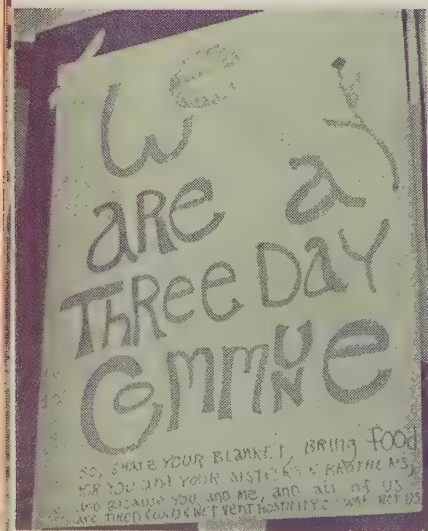 We
aRe a
ThRee Day
CommuNe
SO, SHARE YOUR BLANKET, BRING FOOD
FOR YOU AND YOUR SISTERS & BROTHERS,
AND BECAUSE YOU AND ME, AND all OF US
ARE TIRED VENT HOSTILITY